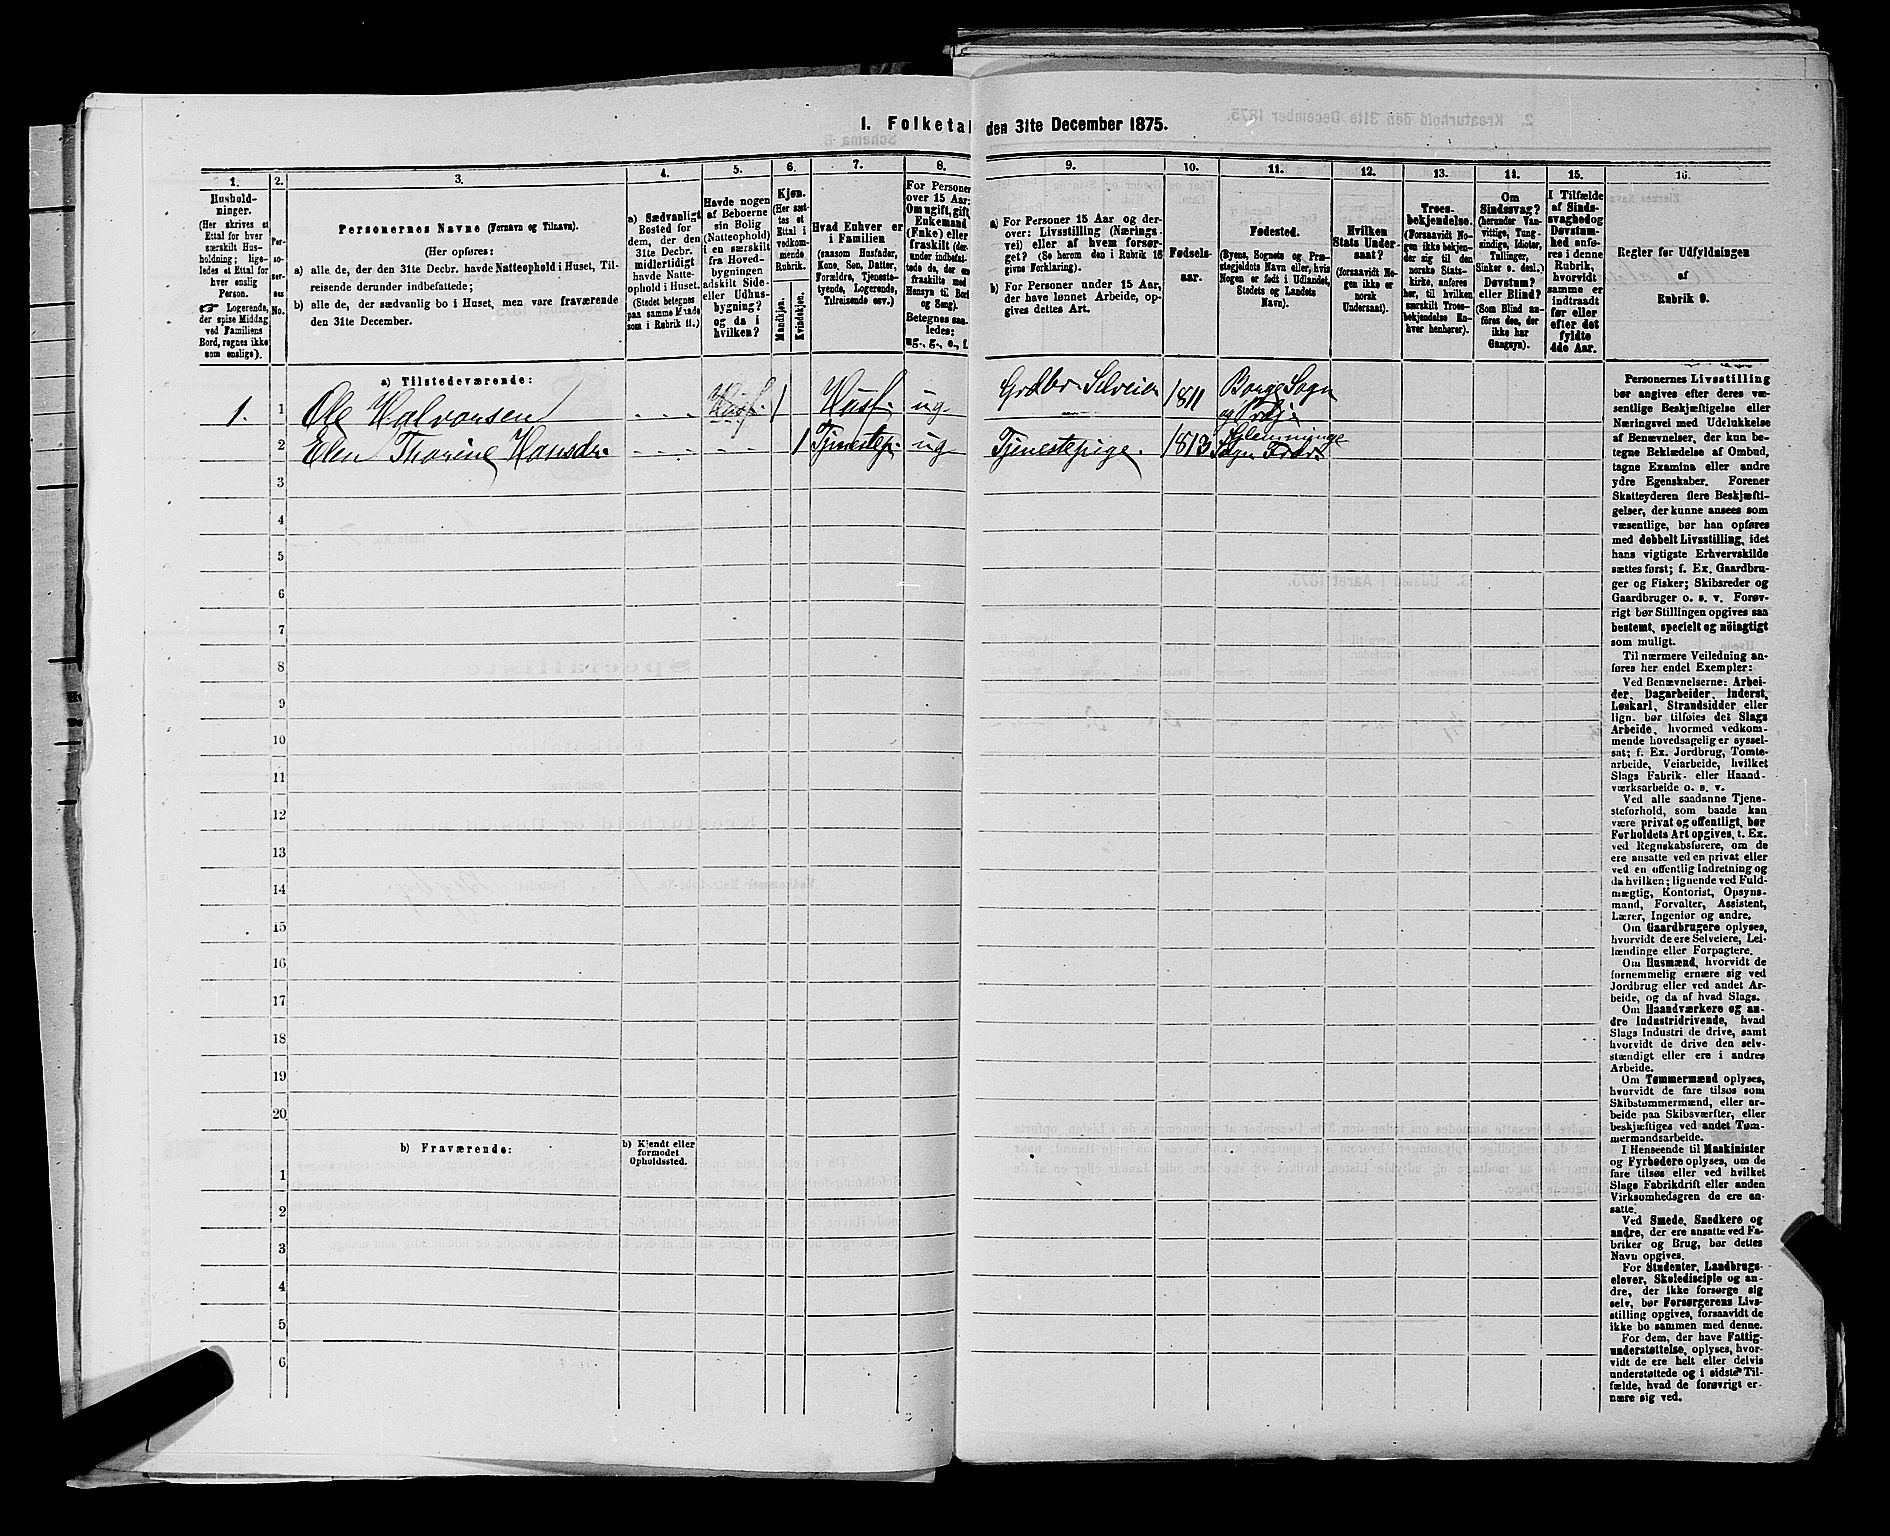 1. Folketal den 31te December 1875.
1.
Hushold-
ninger.
(Her skrives et
Ettal for hver
særskilt Hus-
holdning; lige-
ledes et Ettal for
hver enslig
Person.
Logerende,
der spise Middag
ved Familiens
Bord, regnes ikke
som enslige).
2.
Per-
so-
ner-
nes
No.
3.
Personernes Navne (Fornavn og Tilnavn).
(Her opføres:
a) alle de, der den 31te Decbr. havde Natteophold i Huset, Til-
reisende derunder indbefattede;
b) alle de, der sædvanlig bo i Huset, men vare fraværende
den 31te December.
4.
a) Sædvanligt
Bosted for
dem, der den
31te Decbr.
midlertidigt
havde Natte-
ophold i Huset.
(Stedet betegnes
paa samme Maade
som i Rubrik 11.)
5.
Havde nogen
af Beboerne
sin Bolig
(Natteophold)
i en særskilt
fra Hoved-
bygningen
adskilt Side-
eller Udhus-
bygning?
og da i
hvilken?
6.
Kjøn.
(Her sæt-
tes et
Ettal i
vedkom-
mende
Rubrik.
Mandkjøn.
Kvindekjøn.
7.
Hvad Enhver er
i Familien
(saasom Husfader,
Kone, Søn, Datter,
Forældre, Tjeneste-
tyende, Logerende,
Tilreisende osv.)
8.
For Personer
over 15 Aar:
Om ugift, gift,
Enkemand
(Enke) eller
fraskilt (der-
under indbefat-
tede de, der ere
fraskilte med
Hensyn til Bord
og Seng).
Betegnes saa-
ledes:
ug., g., e., f.
9.
a) For Personer 15 Aar og der-
over: Livsstilling (Nærings-
vei) eller af hvem forsør-
get? (Se herom den i Rubrik 16
givne Forklaring).
b) For Personer under 15 Aar,
der have lønnet Arbeide, op-
gives dettes Art.
10.
Fødsels-
aar.
11.
Fødested.
(Byens, Sognets og Præ-
stegjeldets Navn eller, hvis
Nogen er født i Udlandet,
Stedets og Landets
Navn).
12.
Hvilken
Stats Under-
saat?
(forsaavidt No-
gen ikke er
norsk
Undersaat).
13.
Troes-
bekjendelse.
(Forsaavidt No-
gen ikke bekjen-
der sig til den
norske Stats-
kirke, anføres
her, til hvilken
særskilt Troes-
bekjendelse En-
hver henhører).
14.
Om
Sindssvag?
(herunder Van-
vittige, Tung-
sindige, Idioter,
Tullinger,
Sinker o. desl.)
Døvstum?
eller Blind?
(Som Blind an-
føres den, der
ikke har
Gangsyn).
15.
I Tilfælde
af Sinds-
svaghed og
Døvstum-
hed anfø-
res i denne
Rubrik,
hvorvidt
samme er
indtraadt
før eller
efter det
fyldte
4de Aar.
16.
Regler for Udfyldningen
af
Rubrik 9.
a) Tilstedeværende:
1. 1 Ole Halvorsen - - - - Husf. 1 Husf. ug Grdbr. Selveier 1811 Borge Sogn
og Prgj
2 Elen Thorine Hansdr. - - - - - - - - 1 Tjenestep. ug Tjenestepige. 1813 Glemminge
Sogn
3
4
5
6
7
8
9
10
11
12
13
14
15
16
17
18
19
20
b) Fraværende:
b) Kjendt eller
formodet
Opholdssted.
1
2
3
4
5
6
Personernes Livsstilling
bør angives efter deres væ-
sentlige Beskjæftigelse eller
Næringsvei med Udelukkelse
af Benævnelser, der kun be-
tegne Beklædelse af Ombud,
tagne Examina eller andre
ydre Egenskaber. Forener
Skatteyderen flere Beskjæfti-
gelser, der kunne ansees som
væsentlige, bør han opføres
med dobbelt Livsstilling, idet
hans vigtigste Erhvervskilde
sættes først; f. Ex. Gaardbru-
ger og Fisker; Skibsreder og
Gaardbruger o. s. v. Forøv-
rigt bør Stillingen opgives saa
bestemt, specielt og nöiagtigt
som muligt.
Til nærmere Veiledning an-
føres her endel Exempler:
Ved Benævnelserne: Arbei-
der, Dagarbeider, Inderst,
Løskarl, Strandsidder eller
lign. bør tilføies det Slags
Arbeide, hvormed vedkom-
mende hovedsagelig er syssel-
sat; f. Ex. Jordbrug, Tomte-
arbeide, Veiarbeide, hvilket
Slags Fabrik- eller Haand-
værksarbeide o. s. v.
Ved alle saadanne Tjene-
steforhold, som baade kan
være privat og offentligt, bør
Forholdets Art opgives, t. Ex.
ved Regnskabsførere, om de
ere ansatte ved en privat eller
ved en offentlig Indretning og
da hvilken; lignende ved Fuld-
mægtig, Kontorist, Opsyns-
mand, Forvalter, Assistent,
Lærer, Ingeniør og andre.
Om Gaardbrugere oplyses,
hvorvidt de ere Selveiere, Lei-
lændinge eller Forpagtere.
Om Husmænd, hvorvidt de
fornemmelig ernære sig ved
Jordbrug eller ved andet Ar-
beide, og da af hvad Slags.
Om Haandværkere og an-
dre Industridrivende, hvad
Slags Industri de drive, samt
hvorvidt de drive den selv-
stændigt eller ere i andres
Arbeide.
Om Tømmermænd oplyses,
hvorvidt de fare tilsøs som
Skibstømmermænd, eller ar-
beide paa Skibsværfter, eller
beskjæftiges ved andet Tøm-
mermandsarbeide.
I Henseende til Maskinister
og Fyrbødere oplyses, om de
fare tilsøs eller ved hvilket
Slags Fabrikdrift eller anden
Virksomhedsgren de ere an-
satte.
Ved Smede, Snedkere og
andre, der ere ansatte ved Fa-
briker og Brug, bør dettes
Navn opgives.
For Studenter, Landbrugs-
elever, Skoledisciple og an-
dre, der ikke forsørge sig
selv, bør Forsørgerens Livs-
stilling opgives, forsaavidt de
ikke bo sammen med denne.
For dem, der have Fattig-
understøttelse, oplyses, hvor-
vidt de ere helt eller delvis
understøttede og i sidste Til-
fælde, hvad de forøvrigt er-
nære sig ved.